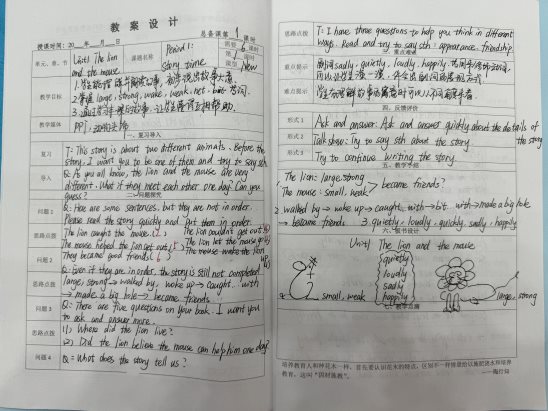 教案设计
总备课第1课时
授课时间：20 年 月 日
单元、章、节
Unit1 The lion and the mouse
课题名称
Period 1: Story time
课型
New
教学目标
2.掌握large, strong, wake, weak, net, bite 等词.
教学媒体
PPT
一、复习导入
复习
T: This story is about two different animals. Before the
story, I want you to be one of them and try to say sth.
导入
Q: As you all know, the lion and the mouse are very
different. What if they meet each other one day? Can you
guess?
二、问题探究
问题1
Q: Here are some sentences, but they are not in order.
Please read the story quickly and put them in order.
思路点拨
The lion caught the mouse. (2) The lion couldn't get out.
The mouse helped the lion get out. (5) The lion let the mouse go.
问题2
They became good friends. (6) The mouse woke the lion up.
Q: Even if they are in order, the story is still not completed.
思路点拨
large, strong → walked by, woke up → caught.. with
→ made a big hole → became friends
问题3
Q: There are five questions on your book. I want you
to ask and answer more.
思路点拨
(1) Where did the lion live?
(2) Did the lion believe the mouse can help him one day?
问题4
Q: What does the story tell us?
思路点拨
T: I have three questions to help you think in different
ways. Read and try to say sth: appearance, friendship
三、重点难点
重点提示
副词sadly, quietly, loudly, happily
难点提示
四、反馈评价
形式1
Ask and answer: Ask and answer quickly about the details of
the story
形式2
Talk show: Try to say sth about the story.
形式3
Try to continue writing the story.
五、教学小结
The lion: large, strong
The mouse: small, weak
became friends?
2 walked by → woke up → caught.. with → bit.. with → made a big hole
→ became friends. 3. quietly, loudly, quickly, sadly, happily
六、板书设计
Unit1 The lion and the mouse
quietly
loudly
sadly
happily
small, weak
large, strong
七、教学后测
培养教育人和种花木一样，首先要认识花木的特点，区别不一样情况给以施肥浇水和培养
教育，这叫“因材施教”。
——陶行知